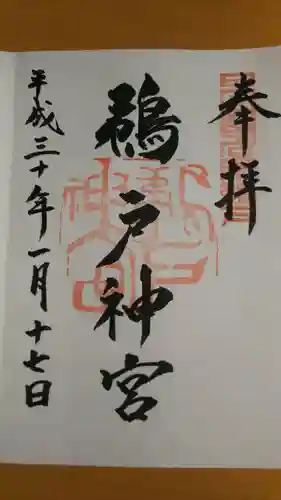 奉拝
鵜戸神宮
平成三十年一月十七日